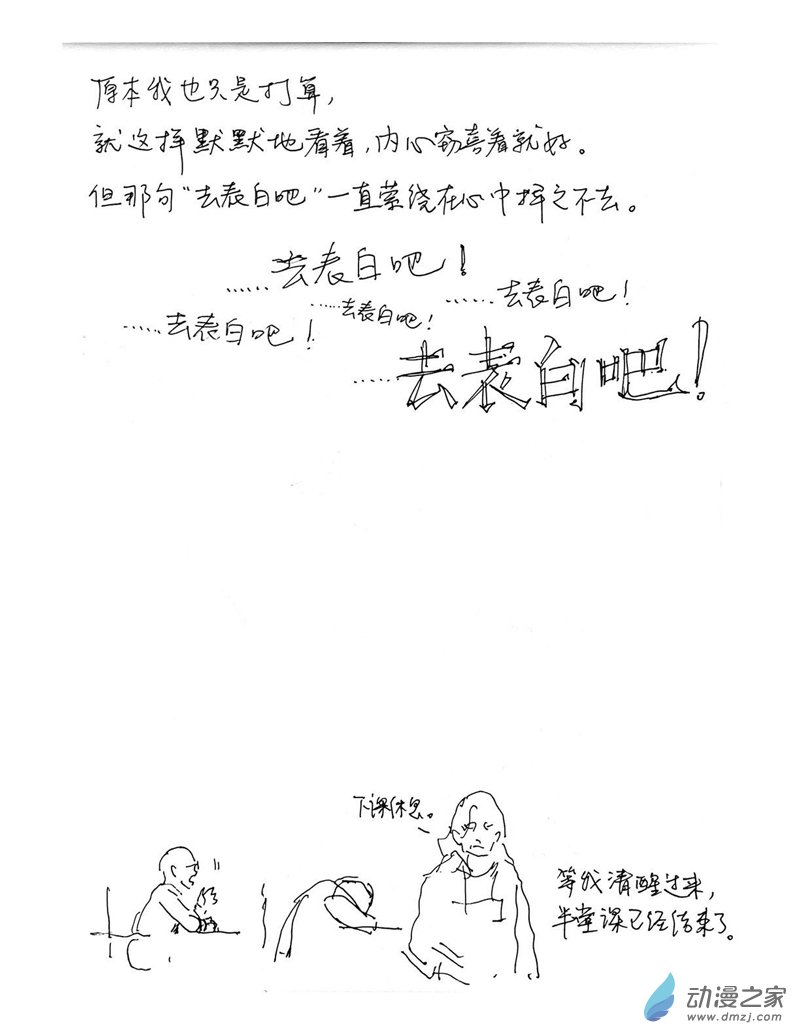 原本我也只是打算，
就这样默默地看着，内心窃喜着就好。
但那句“去表白吧”一直萦绕在心中挥之不去。
……去表白吧！
……去表白吧！
……去表白吧！
……去表白吧！
……去表白吧！
下课休息。
等我清醒过来，
半堂课已经结束了。
动漫之家
www.dmzj.com